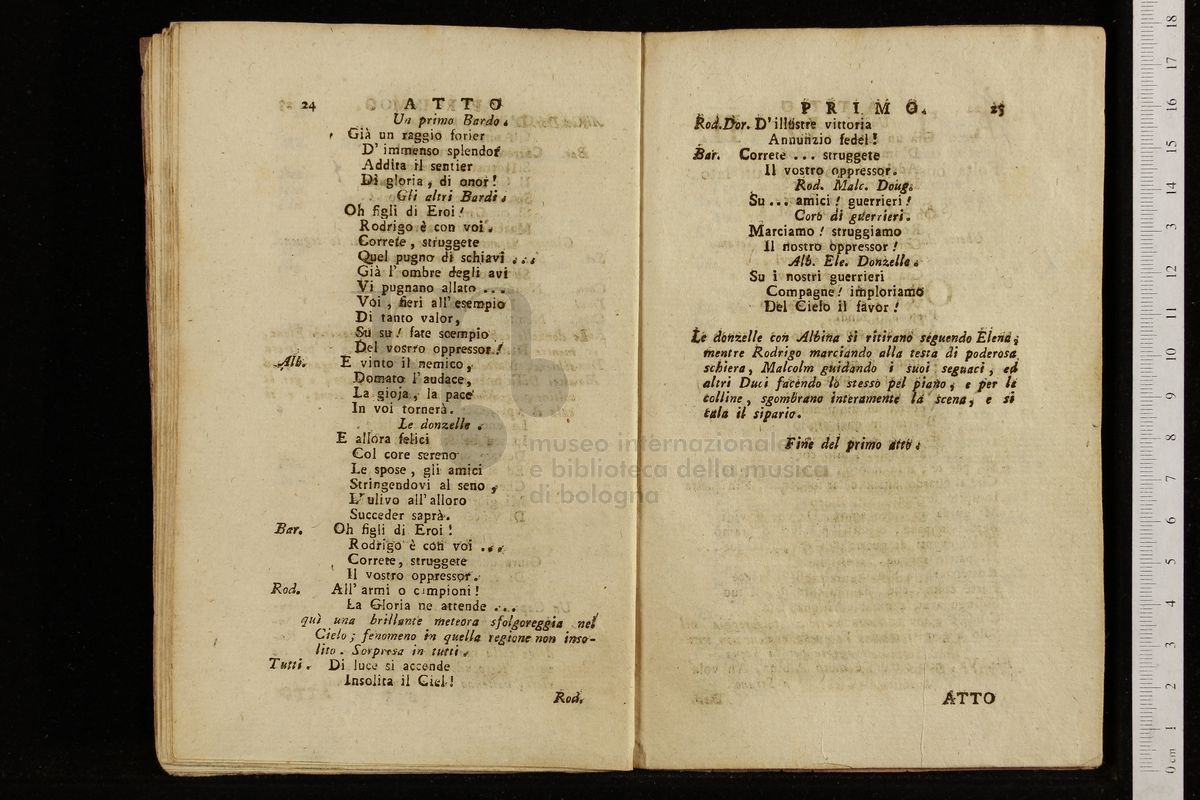 24 ATTO
Un primo Bardo.
Già un raggio forier
D' immenso splendor
Addita il sentier
Di gloria, di onor!
Gli altri Bardi.
Oh figli di Eroi!
Rodrigo è con voi.
Correte, struggete
Quel pugno di schiavi ...
Già l' ombre degli avi
Vi pugnano allato ...
Voi, fieri all' esempio
Di tanto valor,
Su su! fate scempio
Del vostro oppressor!
Alb. E vinto il nemico,
Domato l' audace,
La gioja, la pace
In voi tornerà.
Le donzelle.
E allora felici
Col core sereno
Le spose, gli amici
Stringendovi al seno,
L' ulivo all' alloro
Succeder saprà.
Bar. Oh figli di Eroi!
Rodrigo è con voi ...
Correte, struggete
Il vostro oppressor.
Rod. All' armi o campioni!
La Gloria ne attende ...
quì una brillante meteora sfolgoreggia nel
Cielo; fenomeno in quella regione non inso-
lito. Sorpresa in tutti.
Tutti. Di luce si accende
Insolita il Ciel!
Rod.
PRIMO. 25
Rod. Dor. D' illustre vittoria
Annunzio fedel!
Bar. Correte ... struggete
Il vostro oppressor.
Rod. Malc. Doug.
Su ... amici! guerrieri!
Coro di guerrieri.
Marciamo! struggiamo
Il nostro oppressor!
Alb. Ele. Donzelle.
Su i nostri guerrieri
Compagne! imploriamo
Del Cielo il favor!
Le donzelle con Albina si ritirano seguendo Elena,
mentre Rodrigo marciando alla testa di poderosa
schiera, Malcolm guidando i suoi seguaci, ed
altri Duci facendo lo stesso pel piano, e per le
colline, sgombrano interamente la scena, e si
cala il sipario.
Fine del primo atto.
ATTO
museo internazionale
e biblioteca della musica
di bologna
0 cm 1 2 3 4 5 6 7 8 9 10 11 12 13 14 15 16 17 18